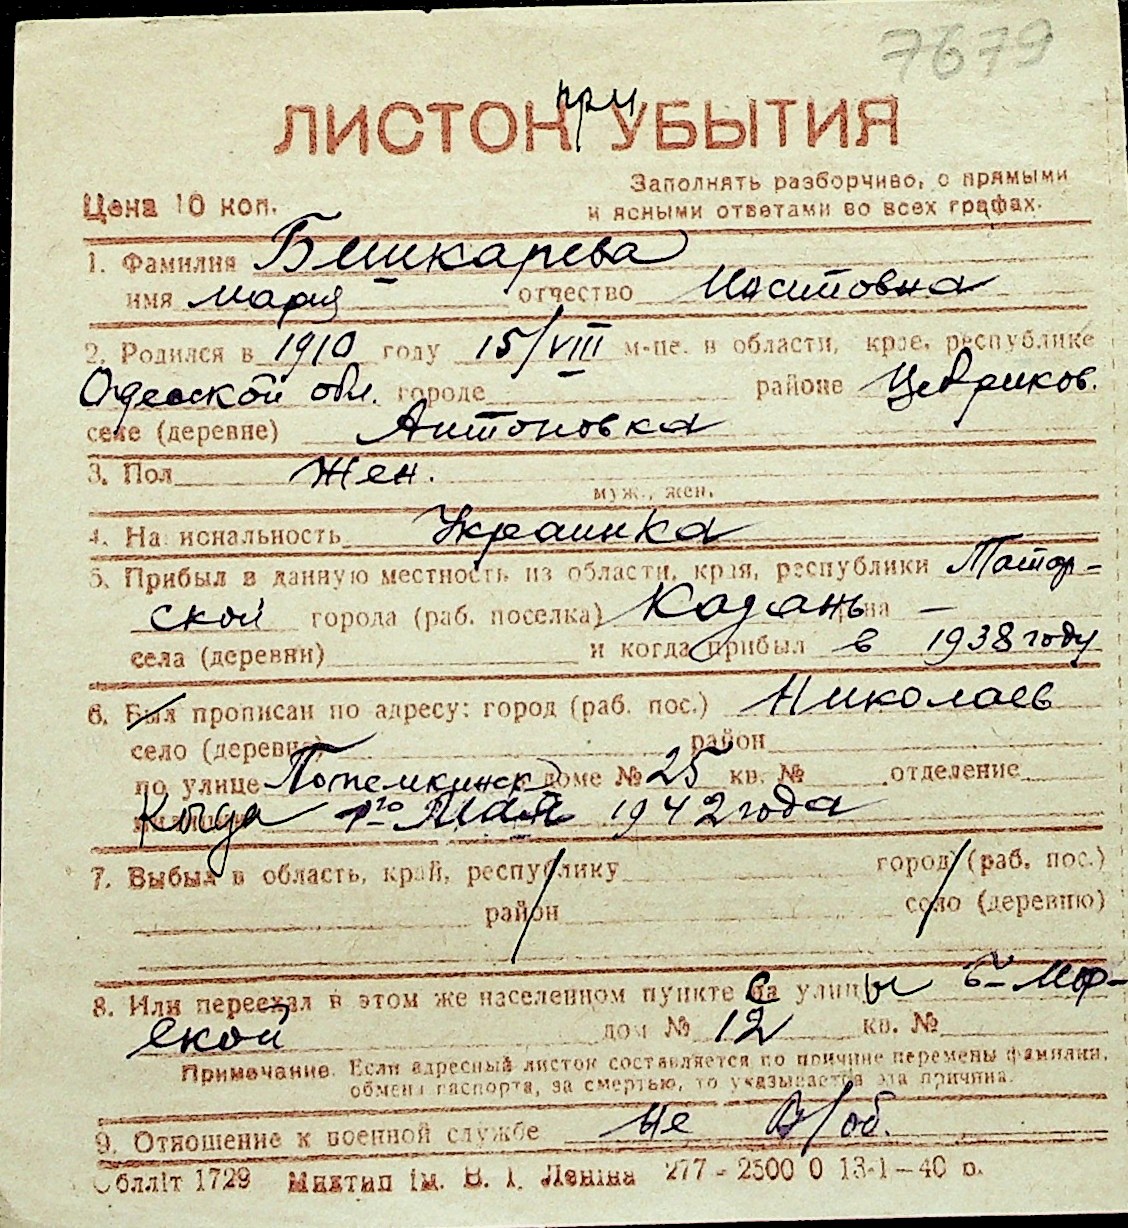 7679
ЛИСТОК при УБЫТИЯ
Цена 10 коп.
Заполнять разборчиво, с прямыми
и ясными ответами во всех графах.
1. Фамилия Бишкарева
имя мария отчество
2. Родился в 1910 году 15/VIII м-це. в области, крае, республике
Одесской обл. городе районе Цебриков.
селе (деревне) Антоновка
3. Пол Жен.
муж., жен.
4. Национальность Украинка
5. Прибыл в данную местность из области, края, республики Татар-
ской города (раб. поселка) Казань –
села (деревни) и когда прибыл в 1938 году
6. Был прописан по адресу: город (раб. пос.) Николаев
село (деревня) район
по улице Потемкинск доме № 25 кв. № отделение
Когда 1го Мая 1942 года
7. Выбыл в область, край, республику город (раб. пос.)
район село (деревню)
8. Или переехал в этом же населенном пункте с улицы б-Мор-
ской дом № 12 кв. №
Примечание. Если адресный листок составляется по причине перемены фамилии,
обмена паспорта, за смертью, то указывается эта причина.
9. Отношение к военной службе не в/об.
Облліт 1729 Миктип ім. В. І. Леніна 277 - 2500 0 13-1-40 р.